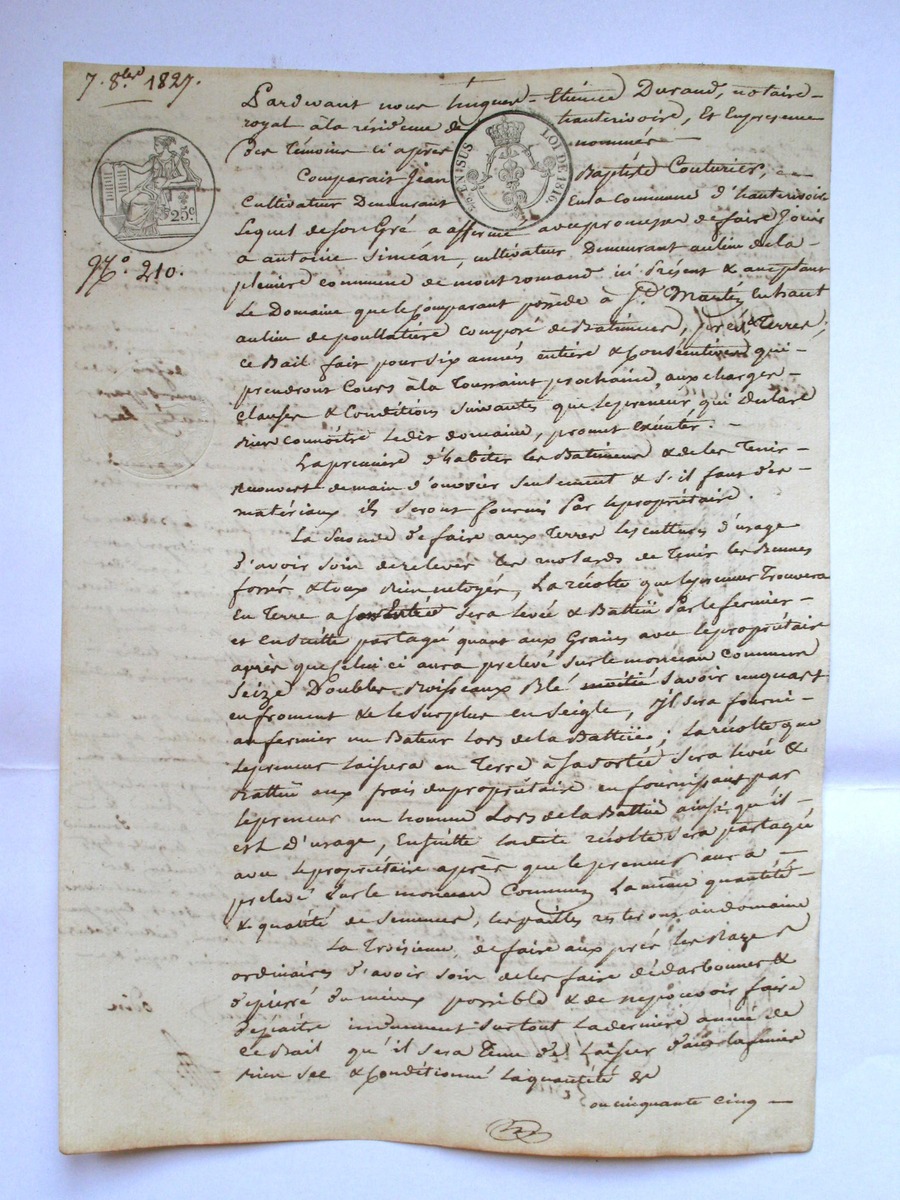 7. 8bre 1827.
Pardevant nous hugues - Etiénce Durand, notaire -
royal à la résidence de hauterivoire, Et En présence
des témoins ci après nommés
25c
EN SUS LOI DE 1816
Comparait Jean Baptiste Couturier,
Cultivateur Demeurant En la commune d'hauterivoire
Lequel de son Gré a affermé avec promesse de faire Jouir
N.o 210.
à antoine Siméan, cultivateur Demeurant au lieu de la -
pleniere commune de montromand ici Présent & acceptant
Le Domaine que le Comparant possède à St Martin En haut
au lieu de pouillatiere Composé de Batiments, prés & Terres,
Ce Bail fait pour six années entiere & Conséutives qui -
prendront Cours à la Toussaint prochaine, aux charges -
Clauses & Conditions Suivantes que le preneur, qui déclare
Bien Connoître Ledit domaine, promet Exécuter. -
La premiere d'habiter les Batiments & de les Tenir -
Recouvert de main d'ouvrier Seulement & s'il faut des -
matériaux ils seront fournis Par le propriétaire.
La Seconde de faire aux Terres les cultures d'usage
d'avoir soin de relever les molards de Tenir les Bennes
fossés & Eaux Bien netoyés, La récolte que le preneur Trouvera
En Terre a son Entrée sera levée & Battüe Par le fermier -
et Ensuitte partagé quant aux Grains avec le propriétaire
après que celui ci aura prelevé sur le monceau Commun
Seize Doubles Boisseaux Blé moitié savoir un quart
en froment & le Surplus en Seigle, il sera fourni -
au fermier un Bateur Lors de la Battüe; La récolte que
Le preneur laissera en Terre à sa sortie Sera levée &
Battüe aux frais du propriétaire en fournissant par
Le preneur un homme Lors de la Battüe ainsi qu'il -
est d'usage, Ensuitte ladite récolte sera partagée
avec le propriétaire après que le preneur aura -
prelevé Sur le monceau Commun La même quantité -
& qualité de Semences, les pailles resteront au domaine
La Troisieme, de faire aux prés les Razes
ordinaires d'avoir soin de les faire dédarbonner &
depierré du mieux possible & de ne pouvoir faire
depaitre induement surtout La derniere année de
Ce Bail qu'il sera Tenu de Laisser dans la feniere
Bien sec & Conditionné La quantité de
ou cinquante cinq -